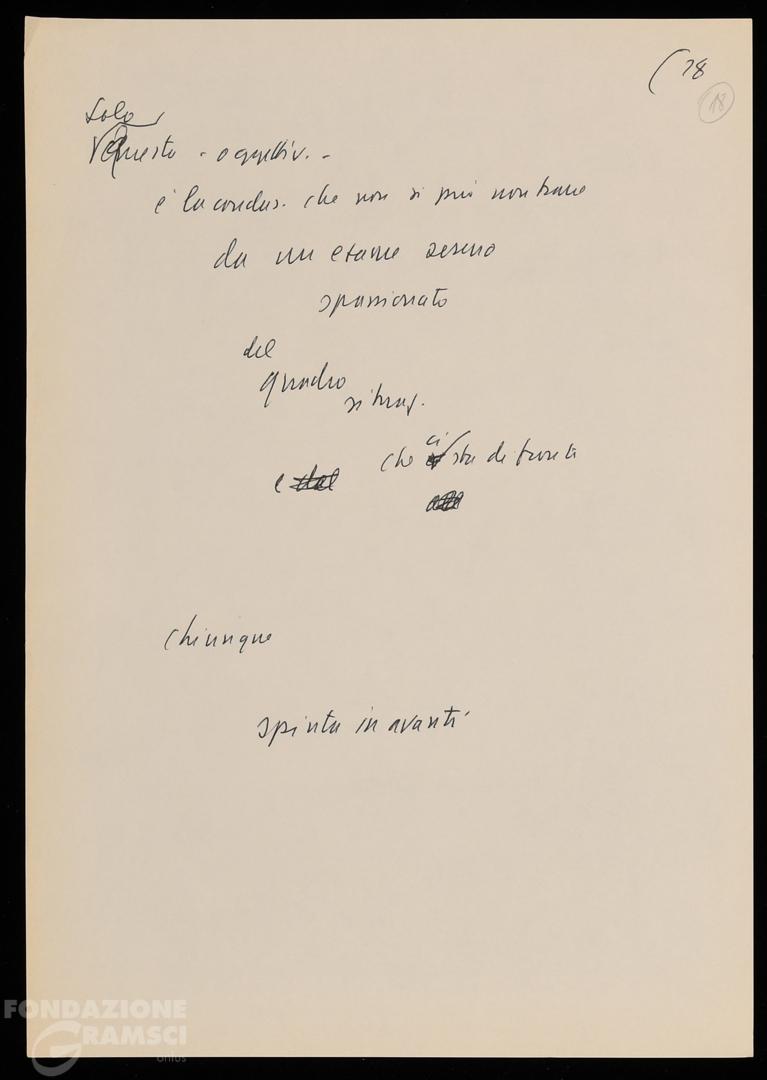 (18
18
Solo
Questa - oggettiv. -
è la conclus. che non si può non trarre
da un esame sereno
spassionato
del
quadro
situaz.
che ci sta di fronte
e
Chiunque
spinta in avanti
FONDAZIONE
GRAMSCI
onlus